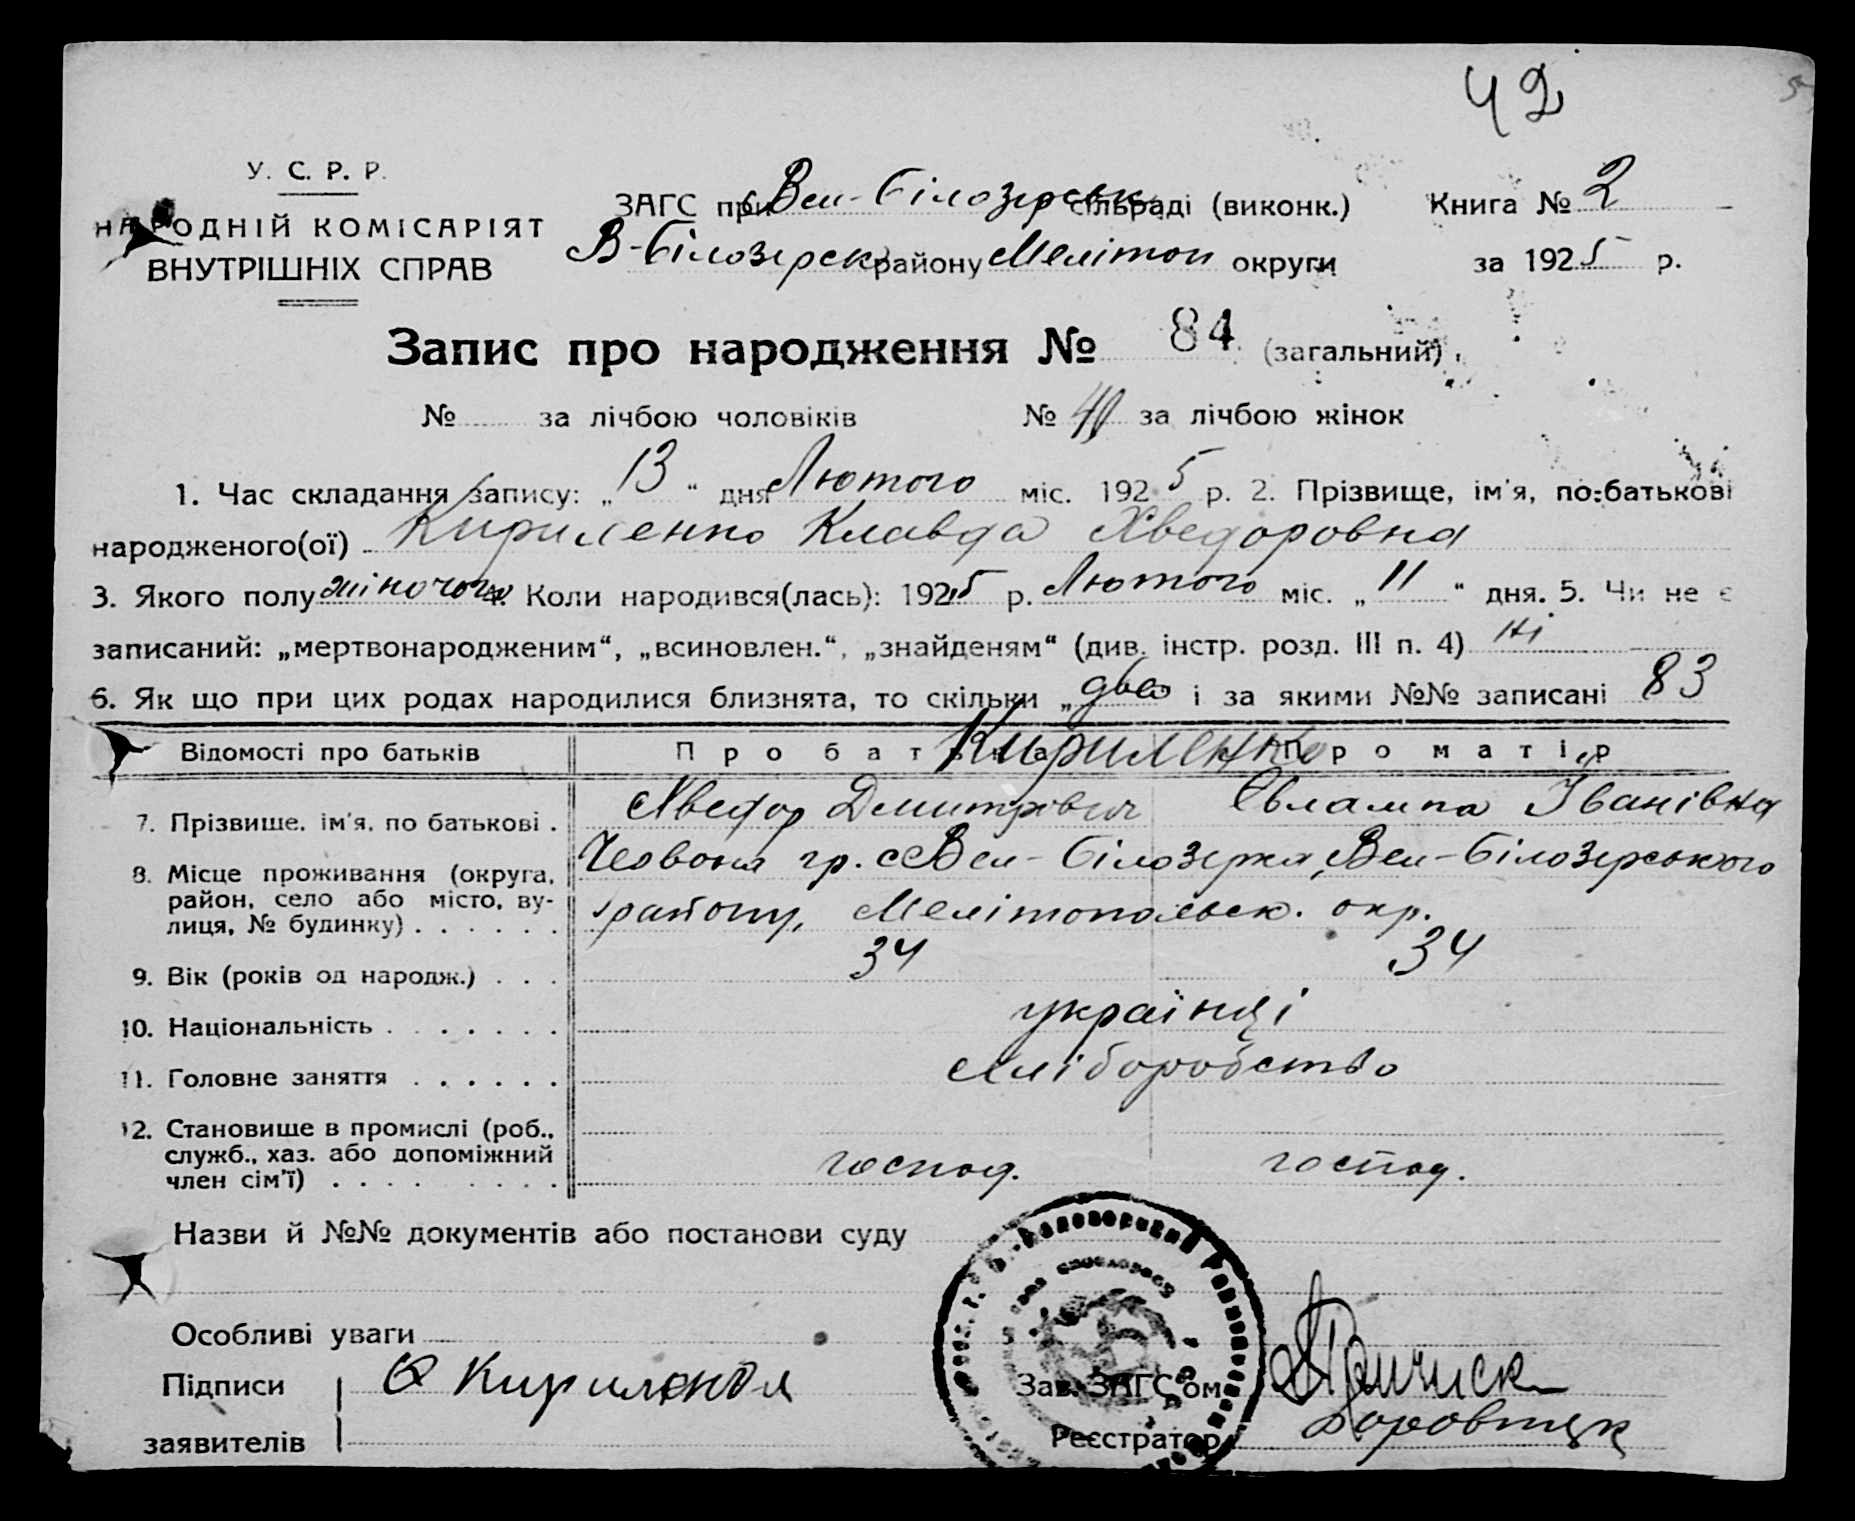 42
У. С. Р. Р.
НАРОДНІЙ КОМІСАРІЯТ
ВНУТРІШНІХ СПРАВ
ЗАГС при Вел-Білозерськ сільраді (виконк.) Книга № 2
В-Білозерск району Мелітоп округи за 1925 р.
Запис про народження № 84 (загальний)
№ за лічбою чоловіків № за лічбою жінок
1. Час складання запису: „13“ дня Лютого міс. 1925 р. 2. Прізвище, ім'я, по-батькові
народженого(ої) Кириленко Клавда Хведоровна
3. Якого полу жіночого 4. Коли народився(лась): 1925 р. Лютого міс. „11“ дня. 5. Чи не є
записаний: „мертвонародженим“, „всиновлен.“, „знайденям“ (див. інстр. розд. III п. 4) ні
6. Як що при цих родах народилися близнята, то скільки „двоє і за якими №№ записані 83
Відомості про батьків Про батька Про матір
Кириленко
7. Прізвише. ім'я, по батькові . Хведор Дмитрович Євлампа Іванівна
8. Місце проживання (округа, район, село або місто, вулиця, № будинку) . . . . . . Червона гр. с Вел-Білозерка, Вел-Білозерського
району, Мелітопольськ. окр.
9. Вік (років од народж.) . . . 34 34
10. Національність . . . . . . . українці
11. Головне заняття . . . . . . хліборобство
12. Становище в промислі (роб., служб., хаз. або допоміжний член сім'ї) . . . . . . . . господ. господ.
Назви й №№ документів або постанови суду
Особливі уваги
Підписи
заявителів
Кириленко
Зав. ЗАГС'ом
Реєстратор